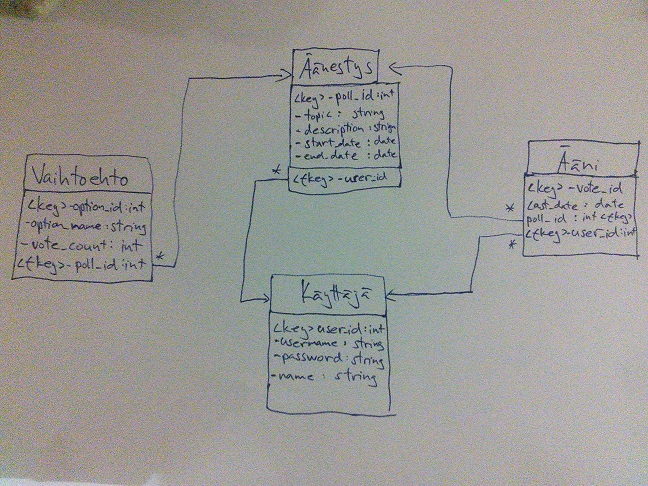 Äänestys
<key>-poll_id:int
-topic: string
-description:string
-start_date: date
-end_date: date
*
<fkey>-user_id
Vaihtoehto
<key>-option_id:int
-option_name:string
-vote_count: int
<fkey>-poll_id:int
*
Ääni
<key>-vote_id
cast_date: date
poll_id: int <fkey>
<fkey>-user_id:int
*
*
Käyttäjä
<key>user_id:int
-username: string
-password:string
-name: string